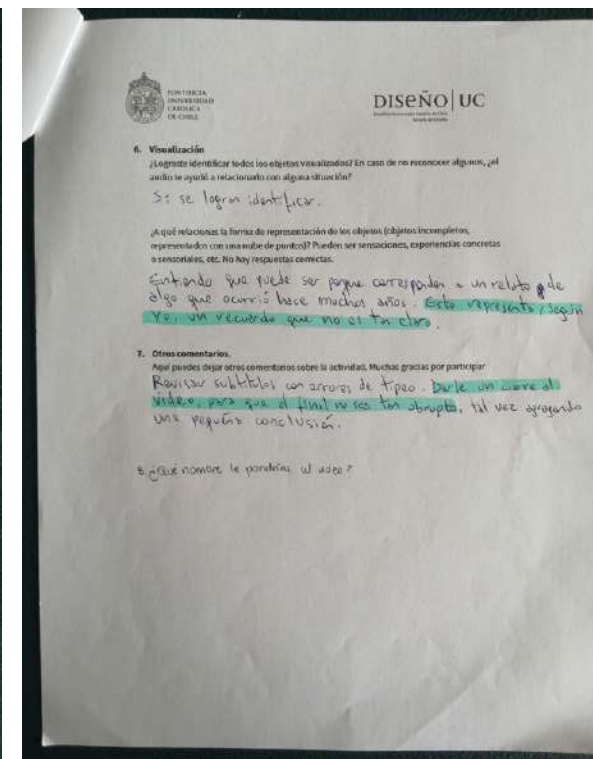 PONTIFICIA
UNIVERSIDAD
CATÓLICA
DE CHILE
DISEÑO | UC
6. Visualización
¿Lograste identificar todos los objetos visualizados? En caso de no reconocer algunos, ¿el
audio te ayudó a relacionarlo con alguna situación?
Si se logran identificar.
¿A qué relacionas la forma de representación de los objetos (objetos incompletos,
representados con una nube de puntos)? Pueden ser sensaciones, experiencias concretas
o sensoriales, etc. No hay respuestas correctas.
Entiendo que puede ser porque corresponden a un relato de
algo que ocurrió hace muchos años. Esto representa, según
yo, un recuerdo que no es tan claro.
7. Otros comentarios.
Aquí puedes dejar otros comentarios sobre la actividad. Muchas gracias por participar
Revisar subtítulos con errores de tipeo. Darle un cierre al
video, para que el final no sea tan abrupto, tal vez agregando
una pequeña conclusión.
8. ¿Qué nombre le pondrías al video?